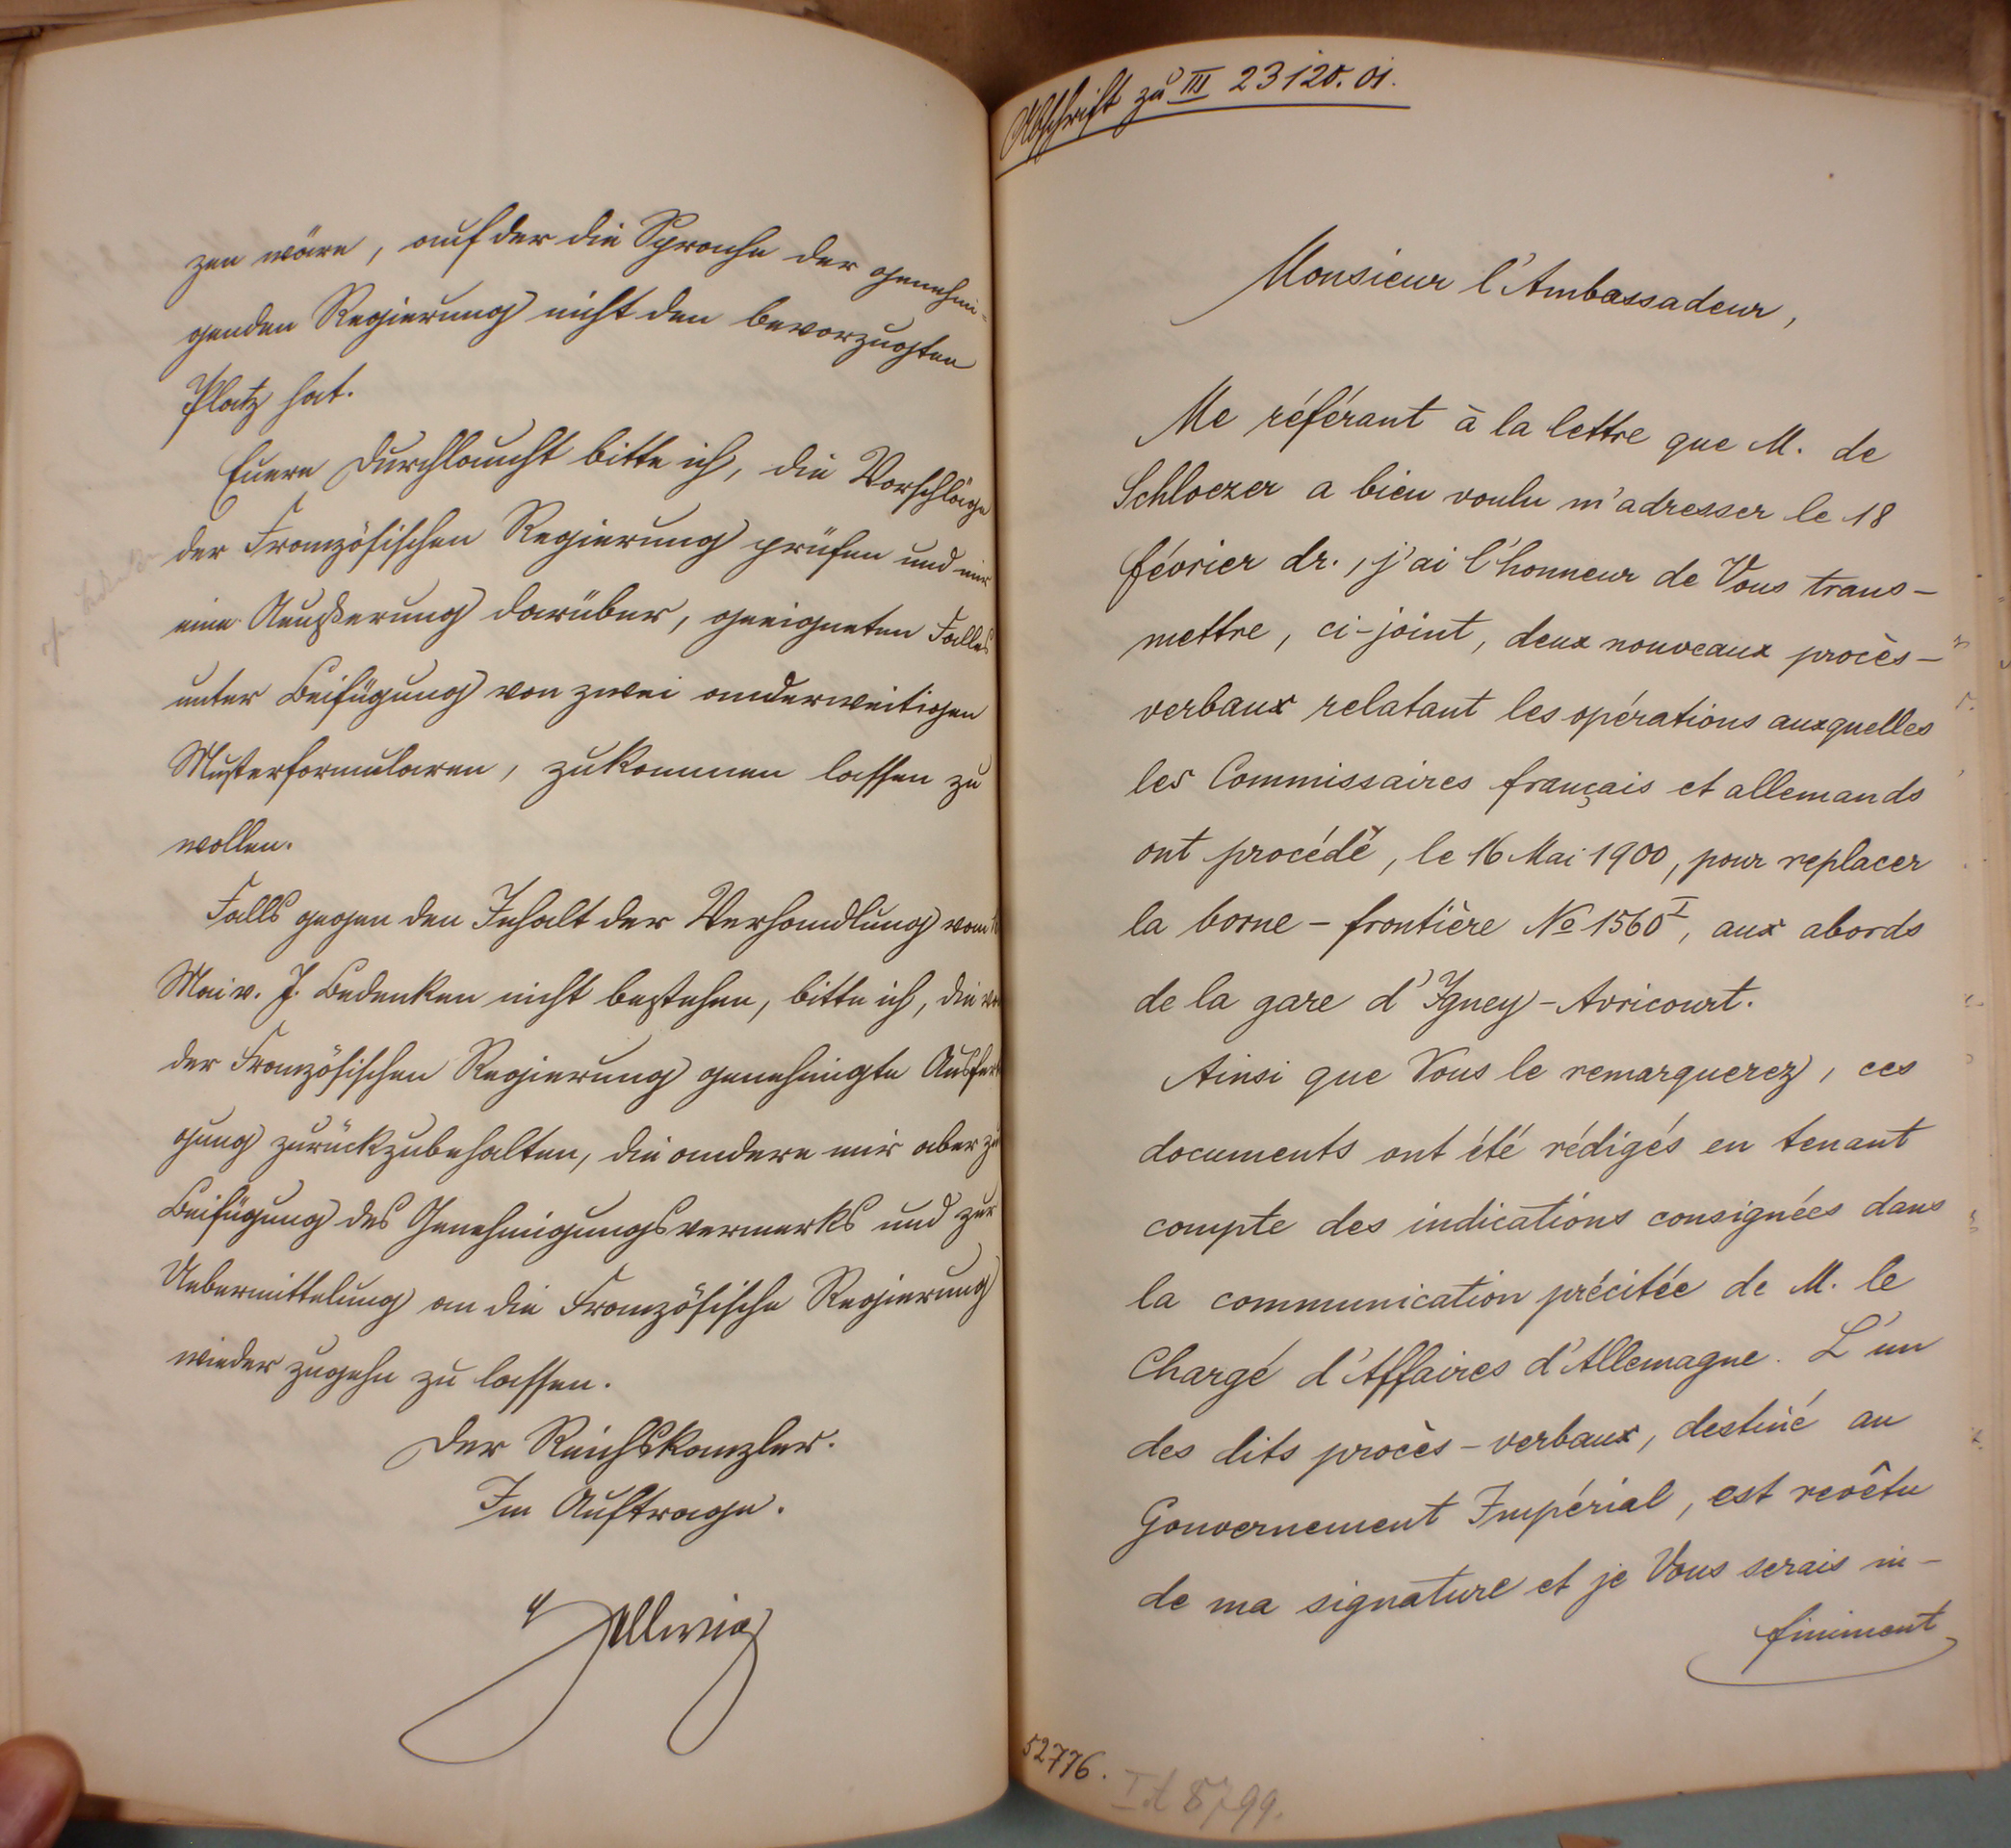 zen wäre, auf der die Sprache der genehmi-
genden Regierung nicht den bevorzugten
Platz hat.
Euere Durchlaucht bitte ich, die Vorschläge
der Französischen Regierung prüfen und mir
eine Aeußerung darüber, geeigneten Falles
unter Beifügung von zwei anderweitigen
Musterformularen, zukommen lassen zu
wollen.
Falls gegen den Inhalt der Verhandlung vom
Mai v. J. Bedenken nicht bestehen, bitte ich, die
der Französischen Regierung genehmigte Ausfer
gung zurückzubehalten, die andere mir aber zu
Beifügung des Genehmigungsvermerks und zur
Uebermittelung an die Französische Regierung
wieder zugehn zu lassen.
Der Reichskanzler.
Im Auftrage.
Hellwig
Abschrift zu III 23120.01.
Monsieur l'Ambassadeur,
Me référant à la lettre que M. de
Schloezer a bien voulu m'adresser le 18
février dr., j'ai l'honneur de Vous trans-
mettre, ci-joint, deux nouveaux procès-
verbaux relatant les opérations auxquelles
les Commissaires français et allemands
ont procédé, le 16 Mai 1900, pour replacer
la borne-frontière No 1560 I, aux abords
de la gare d'Igney-Avricourt.
Ainsi que Vous le remarquerez, ces
documents ont été rédigés en tenant
compte des indications consignées dans
la communication précitée de M. le
Chargé d'Affaires d'Allemagne. L'un
des dits procès-verbaux, destiné au
Gouvernement Impérial, est revêtu
de ma signature et je Vous serais in-
finiment
52776.
I A 8799.